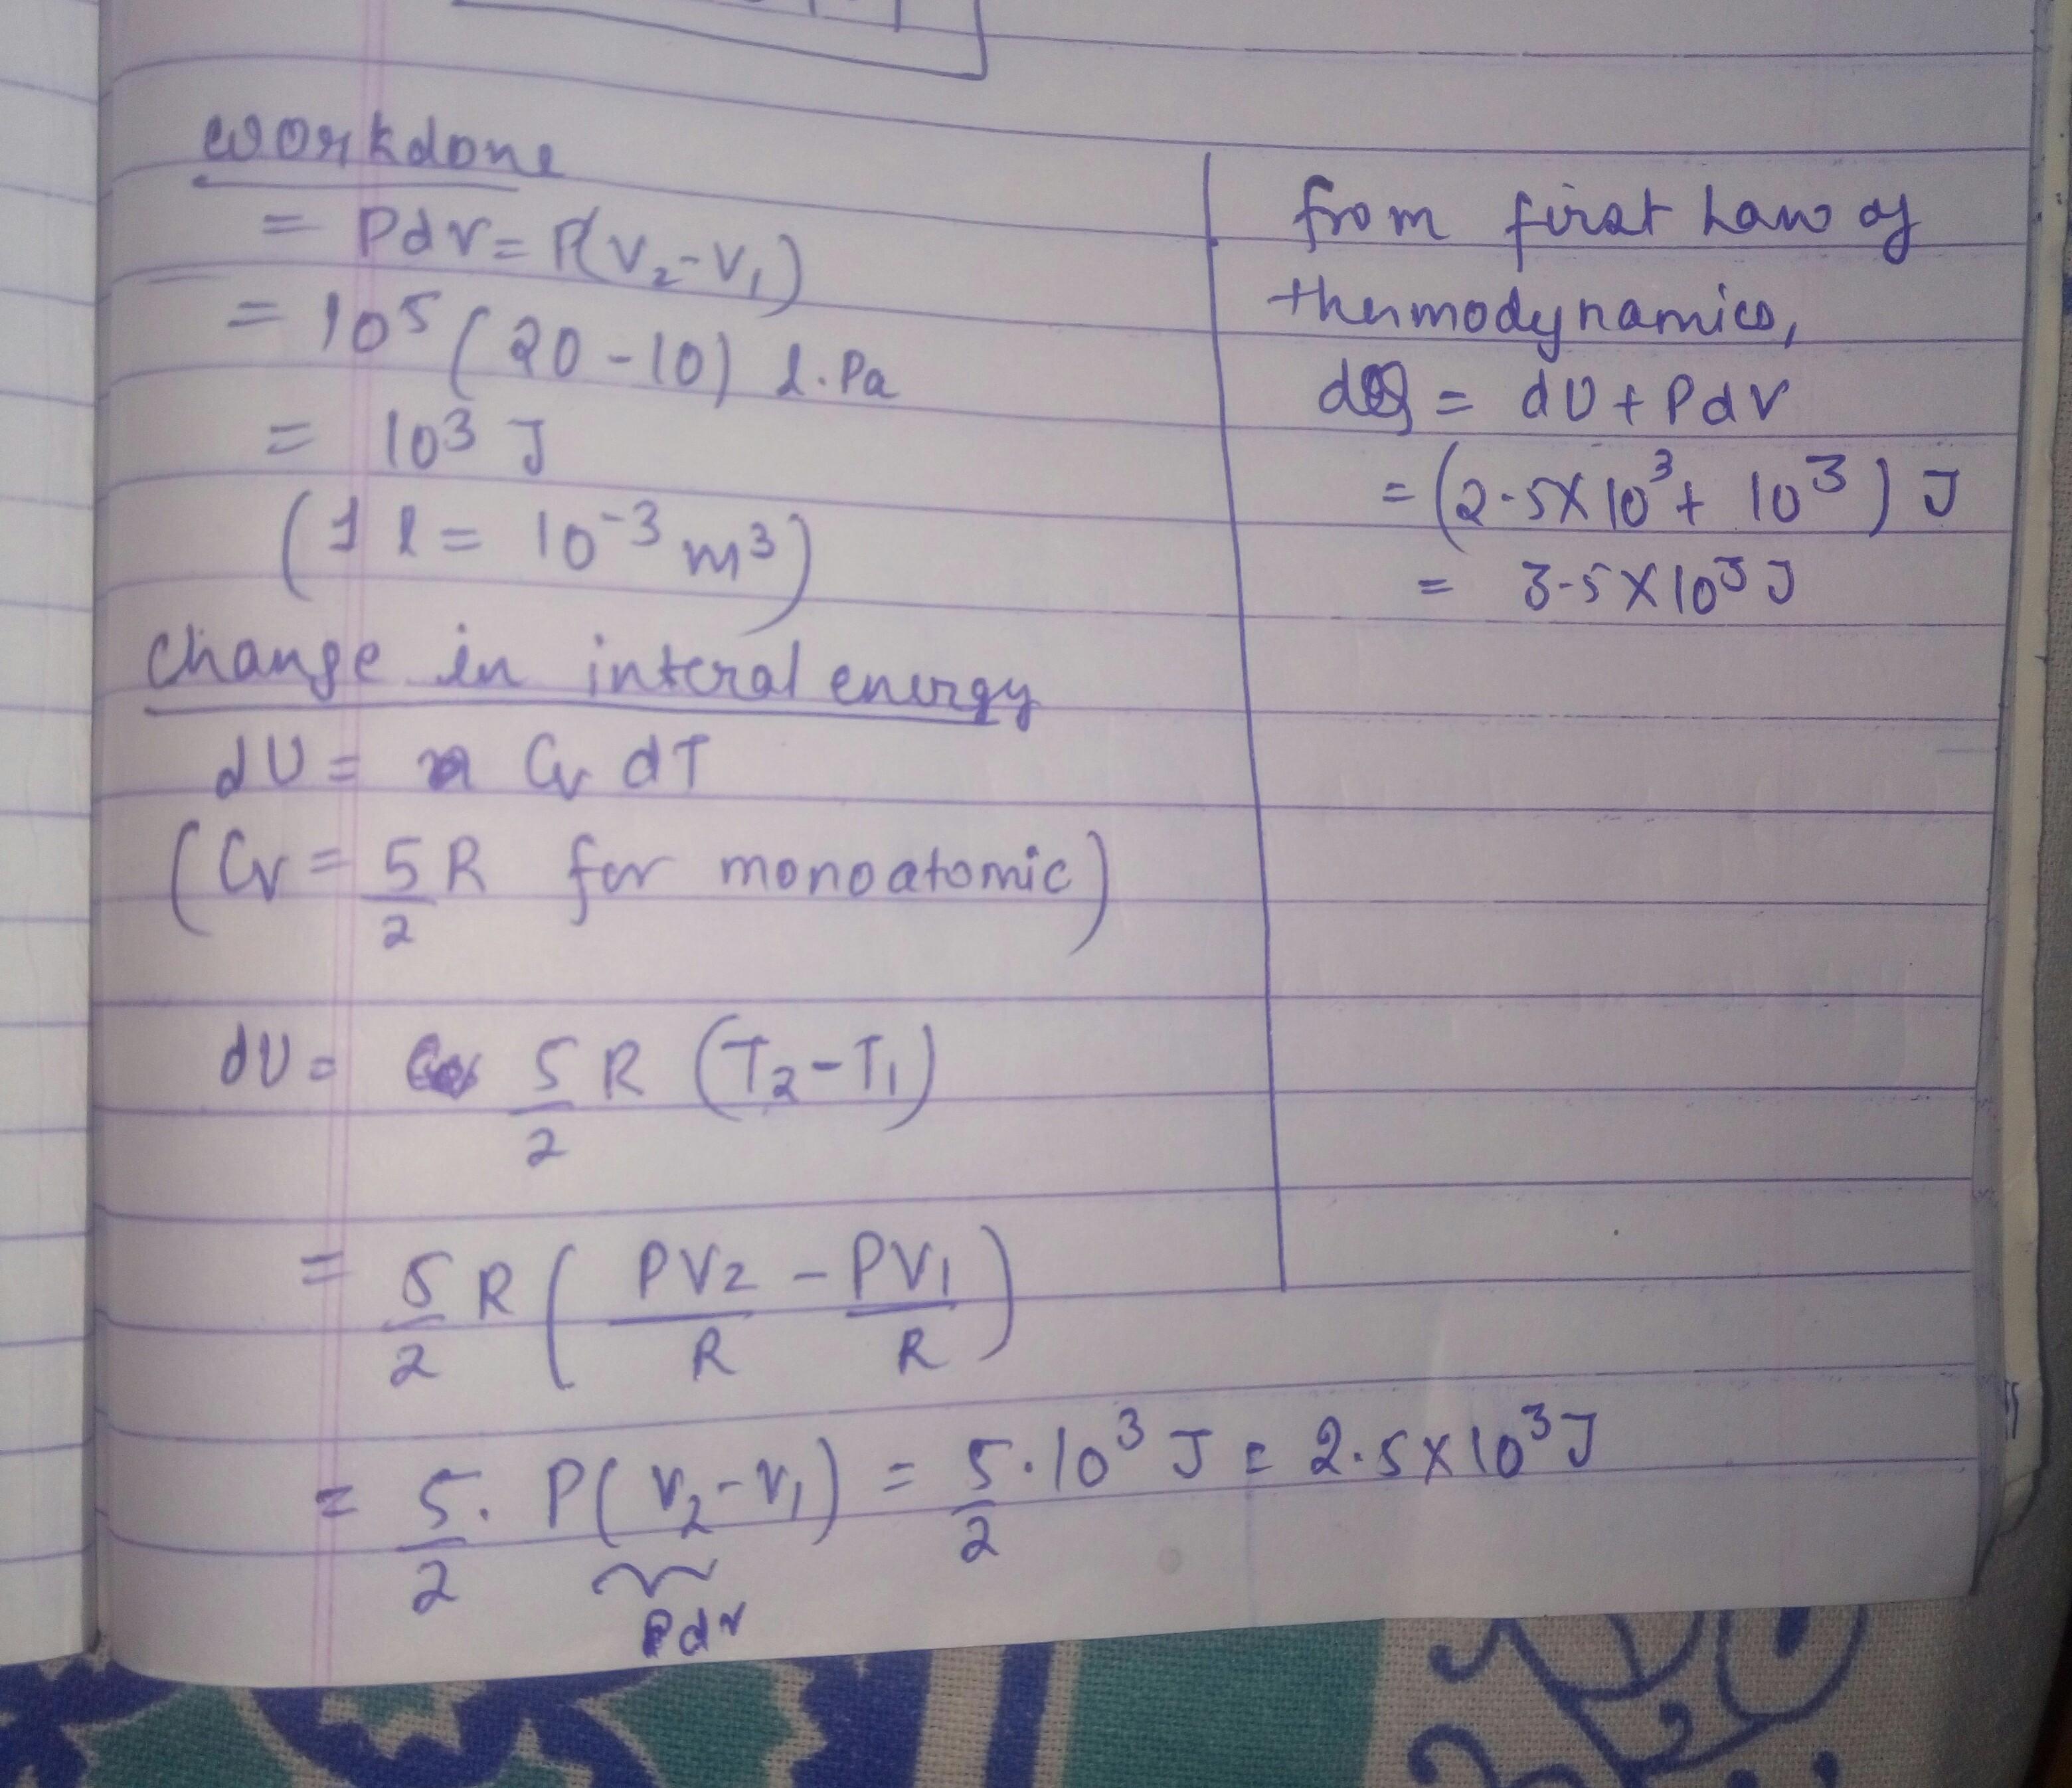 workdone
= Pdv = P(V₂-V₁)
= 10⁵ (20-10) l.Pa
= 10³ J
(1 l = 10⁻³ m³)
Change in interal energy
dU = n Cv dT
(Cv = 5/2 R for monoatomic)
dU = 5/2 R (T₂-T₁)
= 5/2 R (PV₂/R - PV₁/R)
= 5/2 . P(V₂-V₁) = 5/2 . 10³ J = 2.5×10³ J
Pdv
from first Law of
thermodynamics,
dQ = dU + PdV
= (2.5×10³ + 10³) J
= 3.5×10³ J